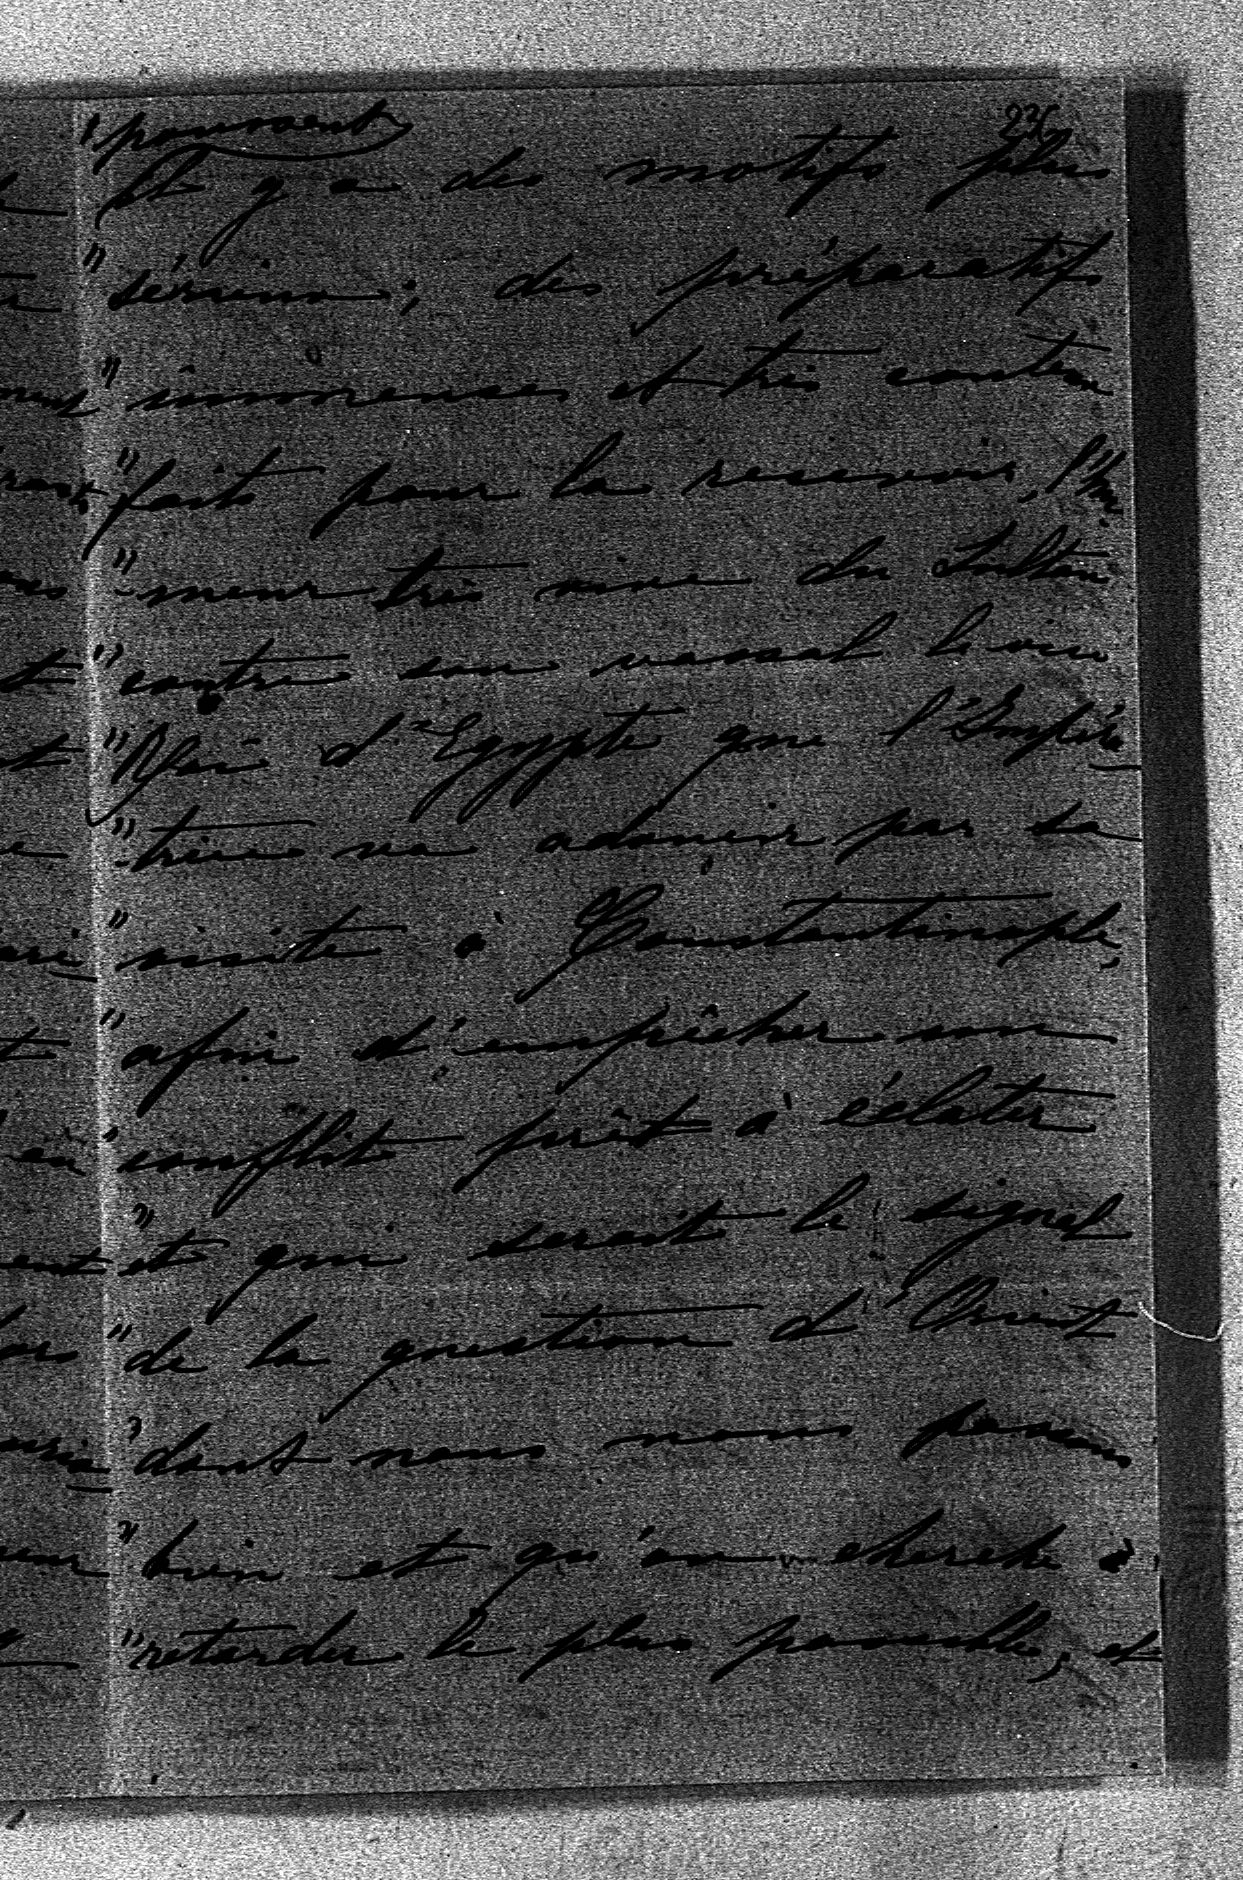 " pourront
Il y a des motifs plus
" sérieux; des préparatifs
" immenses et très couteux
" faits pour la recevoir, l'hu
" -meur très vive du Sultan
" contre son vassal le vice
" Roi d'Egypte que l'Impéra
" -trice va adoucir par sa
" visite à Constantinople,
" afin d'empêcher un
" conflit prêt à éclater
" et qui serait le signal
" de la question d'Orient
" dont nous nous passons
" bien et qu'on cherche à
" retarder le plus possible, et